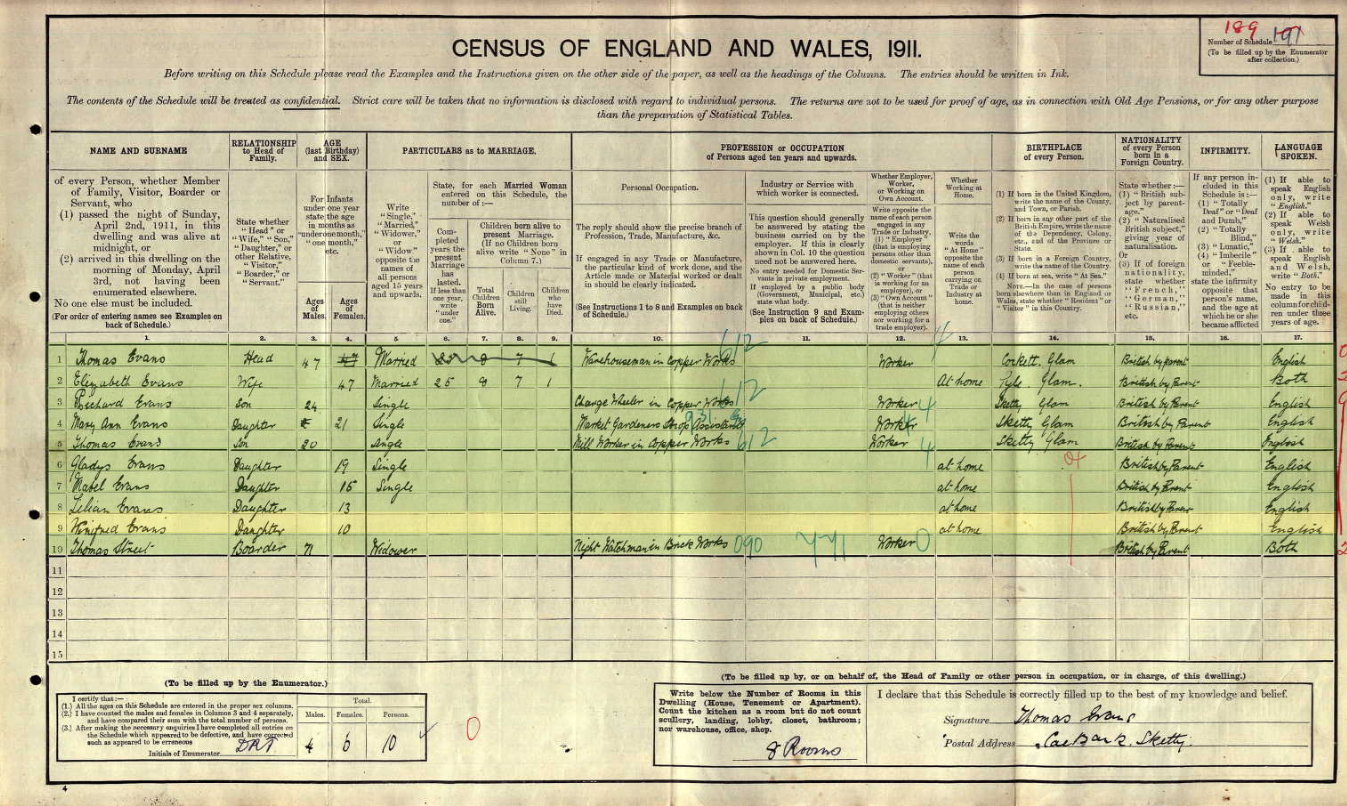 189 191
Number of Schedule
(To be filled up by the Enumerator
after collection.)
CENSUS OF ENGLAND AND WALES, 1911.
Before writing on this Schedule please read the Examples and the Instructions given on the other side of the paper, as well as the headings of the Columns. The entries should be written in Ink.
The contents of the Schedule will be treated as confidential. Strict care will be taken that no information is disclosed with regard to individual persons. The returns are not to be used for proof of age, as in connection with Old Age Pensions, or for any other purpose
than the preparation of Statistical Tables.
NAME AND SURNAME
of every Person, whether Member
of Family, Visitor, Boarder or
Servant, who
(1) passed the night of Sunday,
April 2nd, 1911, in this
dwelling and was alive at
midnight, or
(2) arrived in this dwelling on the
morning of Monday, April
3rd, not having been
enumerated elsewhere.
No one else must be included.
(For order of entering names see Examples on
back of Schedule.)
RELATIONSHIP
to Head of
Family.
State whether
"Head" or
"Wife," "Son,"
"Daughter," or
other Relative,
"Visitor,"
"Boarder," or
"Servant."
AGE
(last Birthday)
and SEX.
For Infants
under one year
state the age
in months as
"under one month,"
"one month,"
etc.
Ages
of
Males.
Ages
of
Females.
PARTICULARS as to MARRIAGE.
Write
"Single,"
"Married,"
"Widower,"
or
"Widow"
opposite the
names of
all persons
aged 15 years
and upwards.
State, for each Married Woman
entered on this Schedule, the
number of:—
Completed
years the
present
Marriage
has
lasted.
If less than
one year,
write
"under
one."
Children born alive to
present Marriage.
(If no Children born
alive write "None" in
Column 7.)
Total
Children
Born
Alive.
Children
still
Living.
Children
who
have
Died.
PROFESSION or OCCUPATION
of Persons aged ten years and upwards.
Personal Occupation.
The reply should show the precise branch of
Profession, Trade, Manufacture, &c.
If engaged in any Trade or Manufacture,
the particular kind of work done, and the
Article made or Material worked or dealt
in should be clearly indicated.
(See Instructions 1 to 8 and Examples on back
of Schedule.)
Industry or Service with
which worker is connected.
This question should generally
be answered by stating the
business carried on by the
employer. If this is clearly
shown in Col. 10 the question
need not be answered here.
No entry needed for Domestic Servants
in private employment.
If employed by a public body
(Government, Municipal, etc.)
state what body.
(See Instruction 9 and Examples
on back of Schedule.)
Whether Employer,
Worker,
or Working on
Own Account.
Write opposite the
name of each person
engaged in any
Trade or Industry,
(1) "Employer"
(that is employing
persons other than
domestic servants),
or
(2) "Worker" (that
is working for an
employer), or
(3) "Own Account"
(that is neither
employing others
nor working for a
trade employer).
Whether
Working at
Home.
Write the
words
"At Home"
opposite the
name of each
person
carrying on
Trade or
Industry at
home.
BIRTHPLACE
of every Person.
(1) If born in the United Kingdom,
write the name of the County,
and Town, or Parish.
(2) If born in any other part of the
British Empire, write the name
of the Dependency, Colony,
etc., and of the Province or
State.
(3) If born in a Foreign Country,
write the name of the Country.
(4) If born at sea, write "At Sea."
NATIONALITY
of every Person
born in a
Foreign Country.
State whether:—
(1) "British subject
by parentage,"
(2) "Naturalised
British subject,"
giving year of
naturalisation.
Or
(3) If of foreign
nationality,
state whether
"French,"
"German,"
"Russian,"
etc.
INFIRMITY.
If any person included
in this
Schedule is:—
(1) "Totally
Deaf" or "Deaf
and Dumb,"
(2) "Totally
Blind,"
(3) "Lunatic,"
(4) "Imbecile"
or "Feeble-minded,"
state the infirmity
opposite that
person's name,
and the age at
which he or she
became afflicted
LANGUAGE
SPOKEN.
(1) If able to
speak English
only, write
"English."
(2) If able to
speak Welsh
only, write
"Welsh."
(3) If able to
speak English
and Welsh,
write "Both."
No entry to be
made in this
column for children
under three
years of age.
1. 2. 3. 4. 5. 6. 7. 8. 9. 10. 11. 12. 13. 14. 15. 16. 17.
1 Thomas Evans Head 47 Married Warehouseman in Copper Works 612 Worker Cockett. Glam British by parent English
2 Elizabeth Evans Wife 47 Married 25 7 1 At home Pyle. Glam. British by Parent Both
3 Richard Evans Son 24 Single in Copper Works 612 Worker 4 Sketty Glam British by Parent English
4 Mary Ann Evans Daughter 21 Single Market Gardeners Shop Assistant Worker Sketty Glam British by Parent English
5 Thomas Evans Son 20 Single Mill Worker in Copper Works 612 Worker 4 Sketty Glam British by Parent English
6 Gladys Evans Daughter 19 Single at home British by Parent English
7 Mabel Evans Daughter Single at home British by Parent English
8 Lilian Evans Daughter 13 at home British by Parent English
9 Winifred Evans Daughter 10 at home British by Parent English
10 Thomas Street Boarder 71 Widower Night Watchman in Brick Works 090 Worker 0 British by Parent Both
11
12
13
14
15
(To be filled up by the Enumerator.)
I certify that:—
(1.) All the ages on this Schedule are entered in the proper sex columns.
(2.) I have counted the males and females in Columns 3 and 4 separately,
and have compared their sum with the total number of persons.
(3.) After making the necessary enquiries I have completed all entries on
the Schedule which appeared to be defective, and have corrected
such as appeared to be erroneous
Initials of Enumerator
Total.
Males. Females. Persons.
4 6 10
0
(To be filled up by, or on behalf of, the Head of Family or other person in occupation, or in charge, of this dwelling.)
Write below the Number of Rooms in this
Dwelling (House, Tenement or Apartment).
Count the kitchen as a room but do not count
scullery, landing, lobby, closet, bathroom;
nor warehouse, office, shop.
8 Rooms
I declare that this Schedule is correctly filled up to the best of my knowledge and belief.
Signature Thomas Evans
Postal Address Sketty
4